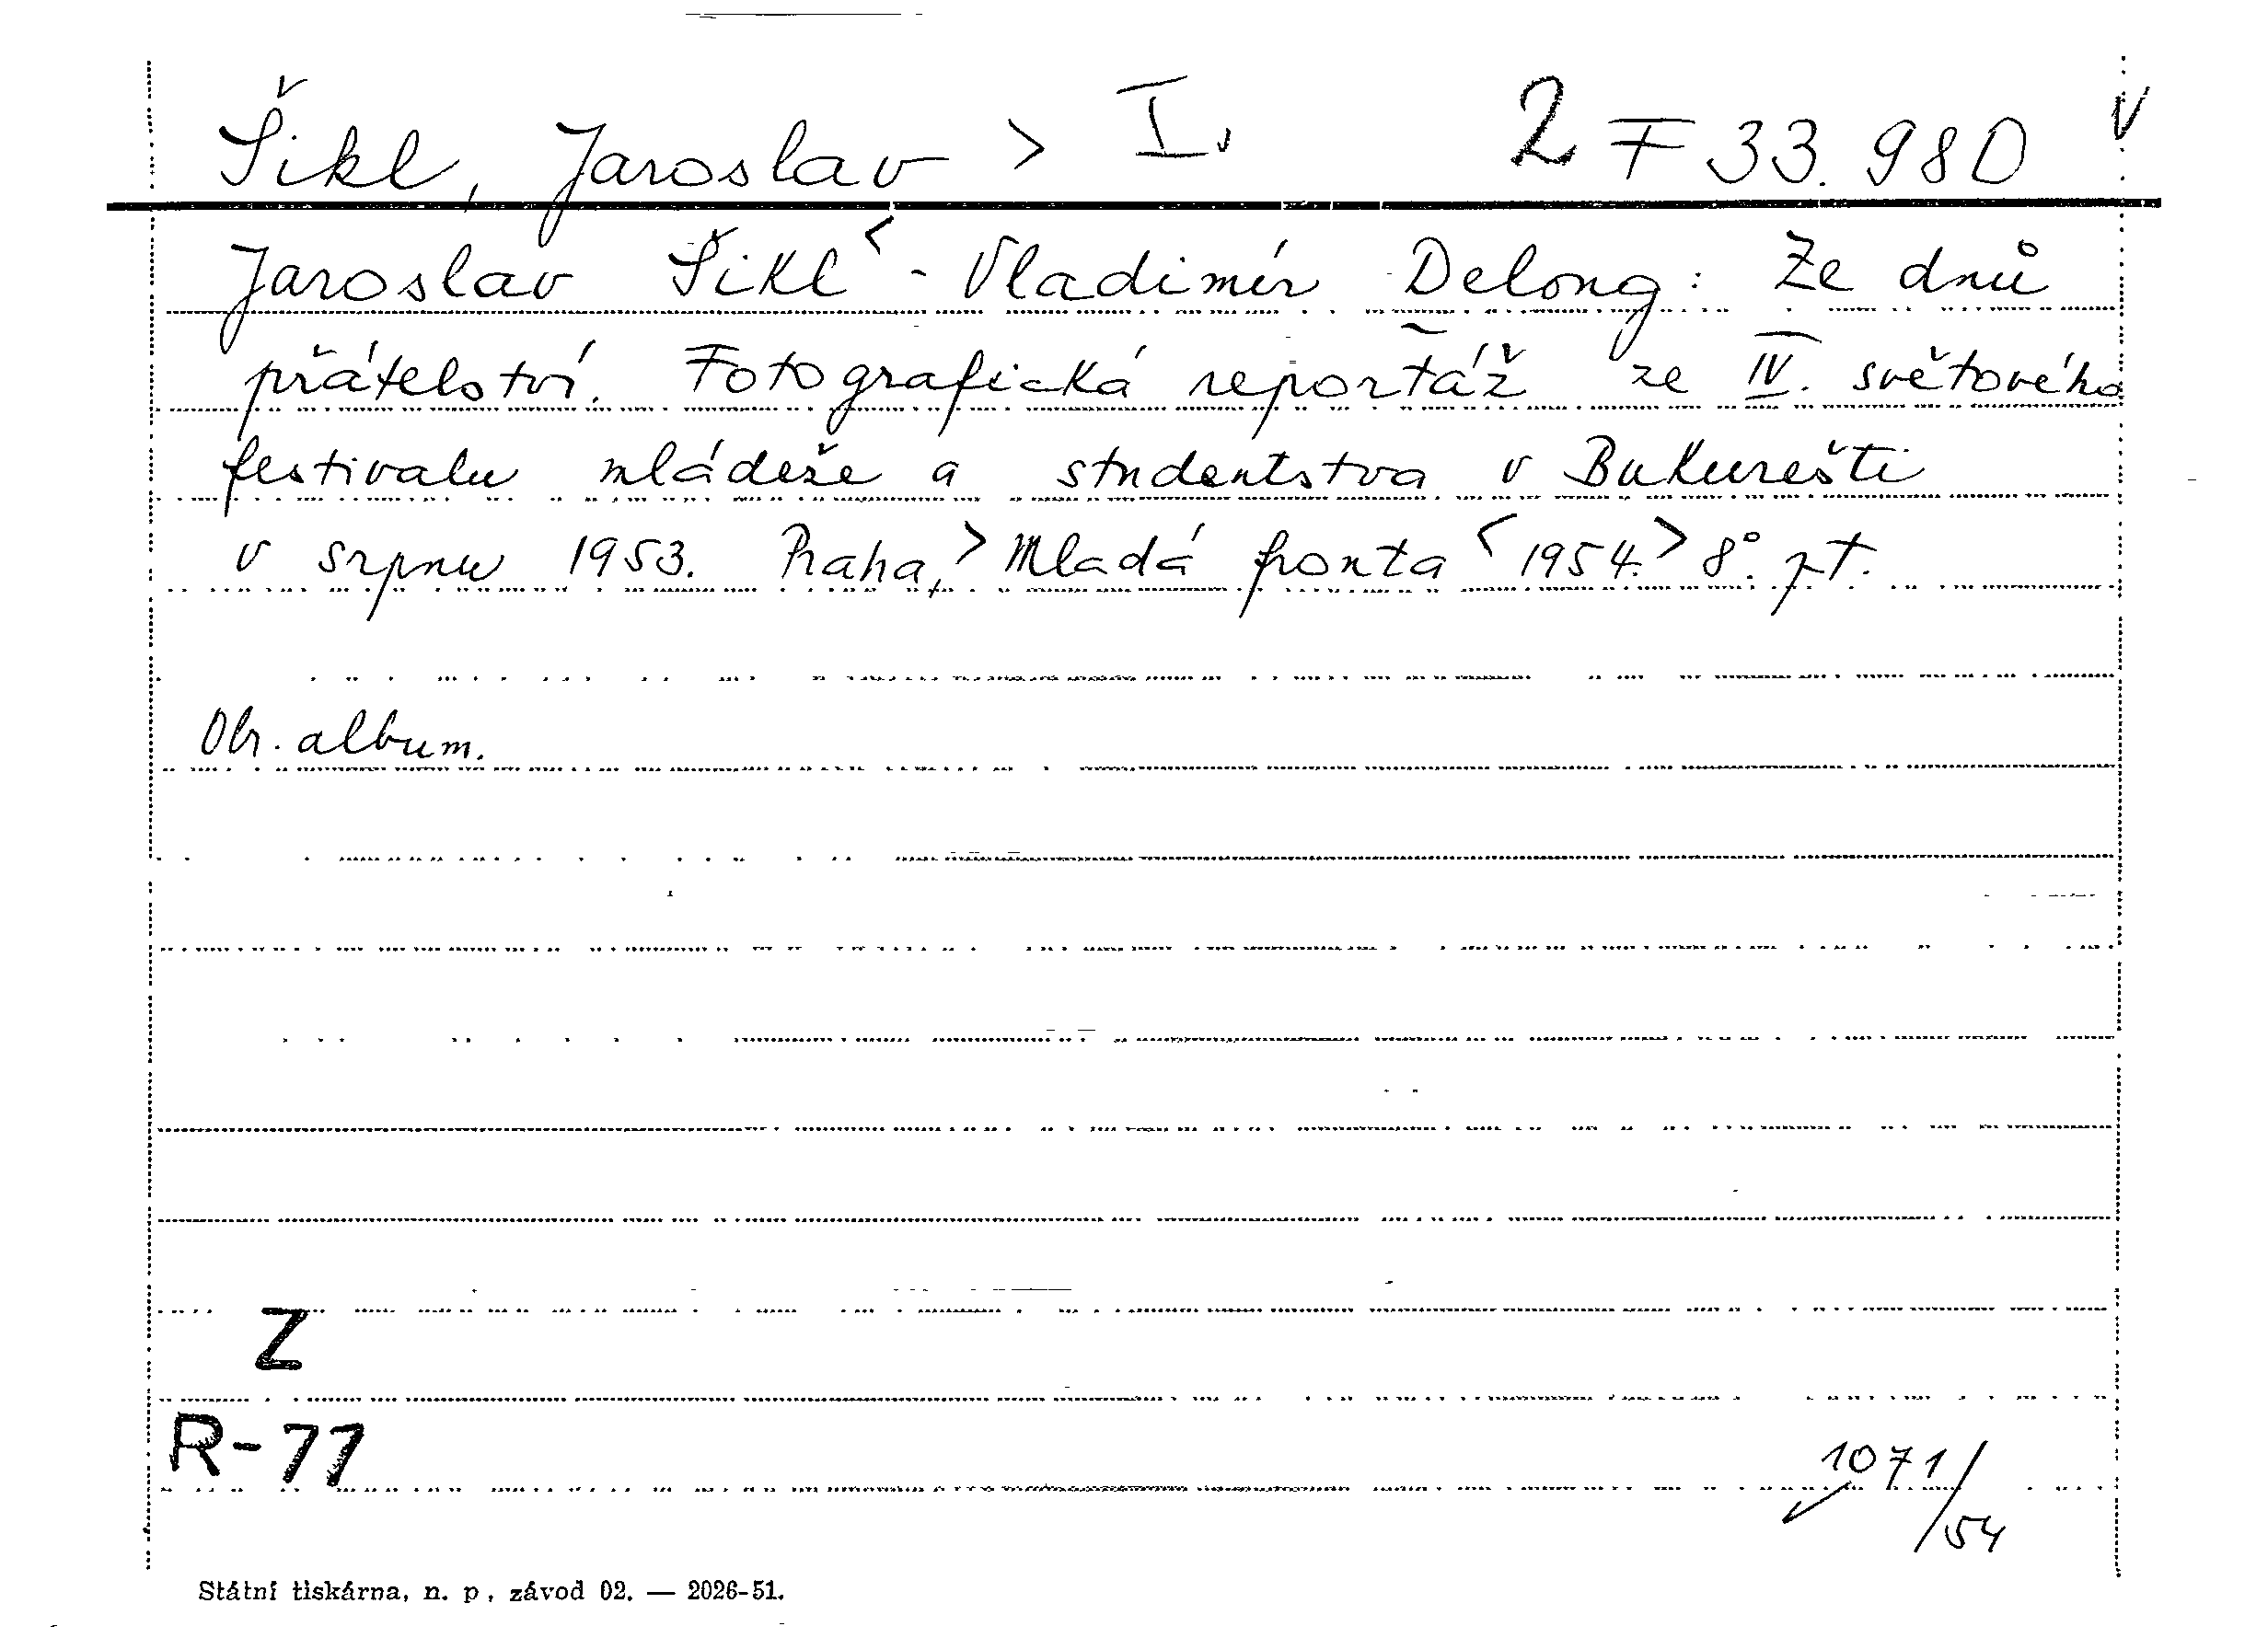 Šikl, Jaroslav > I. 2 F 33.980 v
Jaroslav Šikl < - Vladimír Delong: Ze dnů
přátelství. Fotografická reportáž ze IV. světového
festivalu mládeže a studentstva v Bukurešti
v srpnu 1953. Praha, > Mladá fronta < 1954. > 8°. pt.
Obr. album.
Z
R-77
1071/54
Státní tiskárna, n. p., závod 02. — 2026-51.